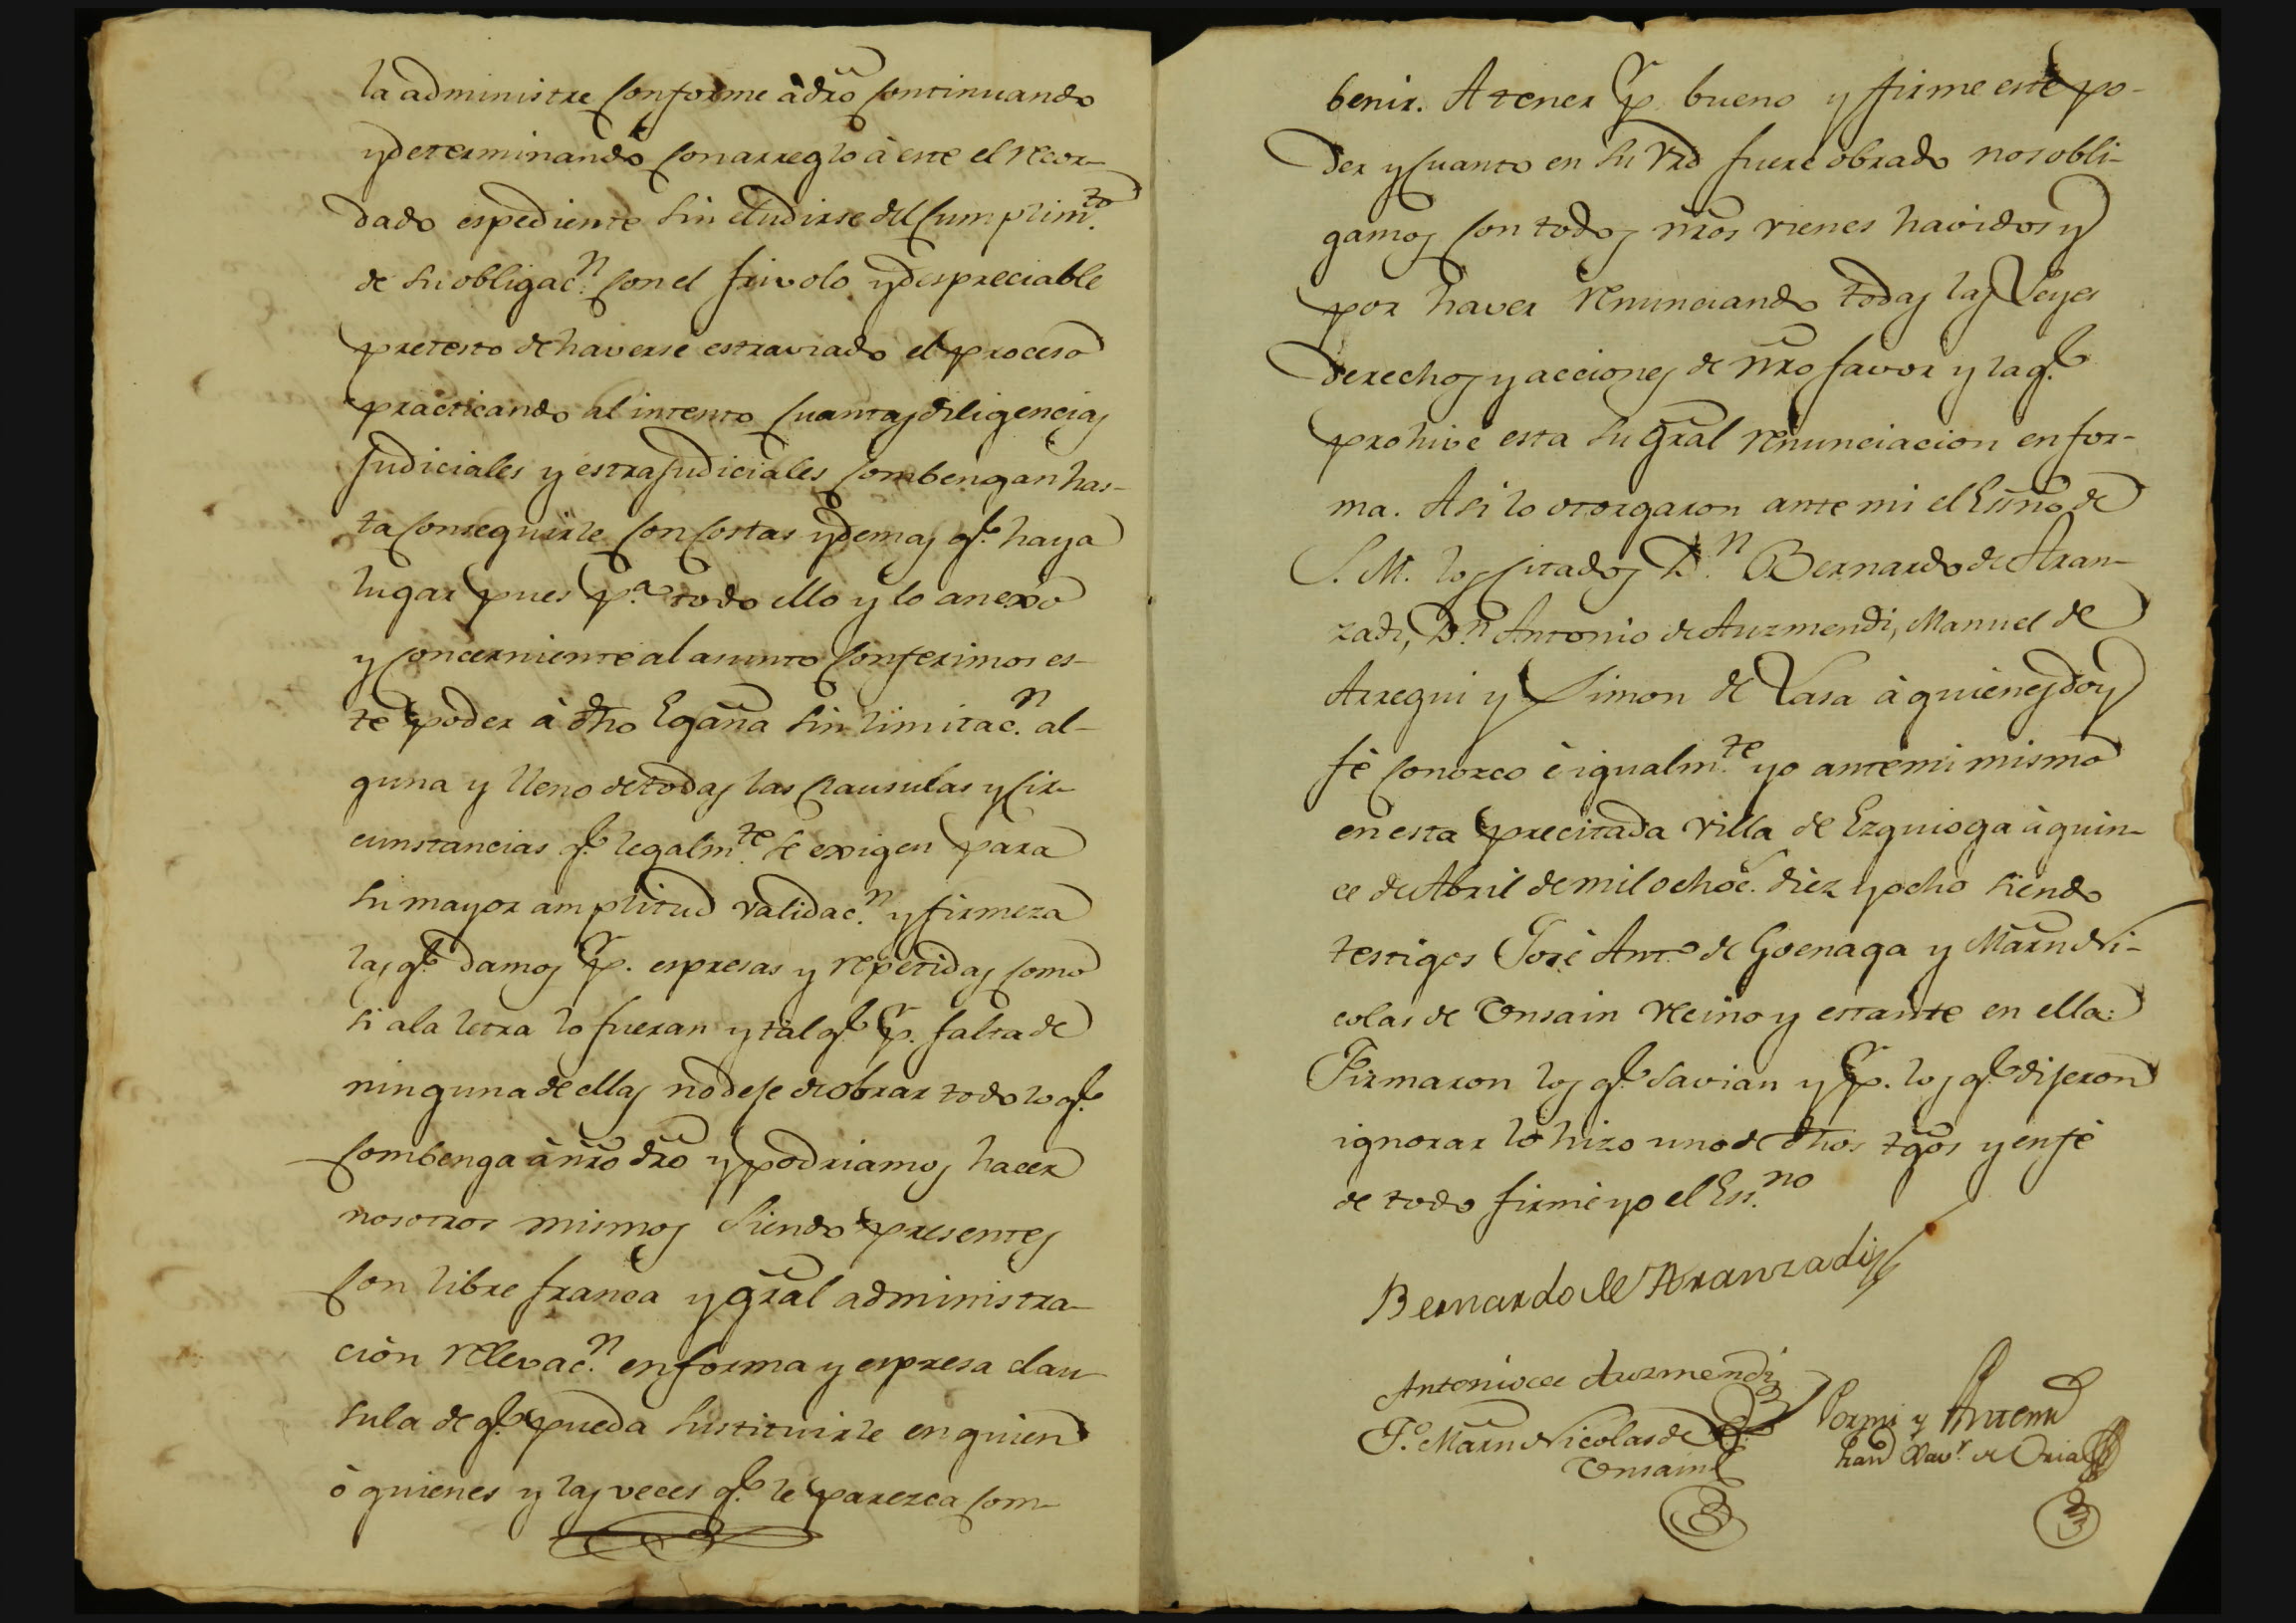 la administre conforme à dro continuando
y determinando con arreglo à este el recor-
dado espediente sin eludirse del cumplimto.
de su obligacn. con el frivolo y despreciable
pretesto de haverse estraviado el proceso
practicando al intento cuantas diligencias
judiciales y estrajudiciales combengan has-
ta conseguirle con costas y demas qe. haya
lugar pues pa. todo ello y lo anexo
y concerniente al asunto conferimos es-
te poder à dho Egaña sin limitacn. al-
guna y lleno de todas las clausulas y cir-
cunstancias qe. legalmte. se exigen para
su mayor amplitud validacn. y firmeza
las qe. damos pr. espresas y repetidas como
si a la letra lo fueran y tal qe. pr. falta de
ninguna de ellas no deje de obrar todo lo qe.
combenga à nro dro y podriamos hacer
nosotros mismos siendo presentes
con libre franca y gral administra-
ciòn relevacn. en forma y espresa clau-
sula de qe. pueda sustituirle en quien
ò quienes y las veces qe. le parezca com-
benir. A tener pr. bueno y firme este po-
der y cuanto en su vrd fuere obrado nos obli-
gamos con todos nros vienes havidos y
por haver renunciando todas las Leyes
derechos y acciones de nro favor y la qe.
prohive esta su gral renunciacion en for-
ma. Asi lo otorgaron ante mi el Esno. de
S. M. los citados Dn. Bernardo de Aran-
zadi, Dn. Antonio de Auzmendi, Manuel de
Arregui y Simon de Lasa à quienes doy
fè conozco è igualmte. yo ante mi mismo
en esta precitada villa de Ezquioga à quin-
ce de Abril de mil ochoc. diez y ocho siendo
testigos José Anto. de Goenaga y Marn Ni-
colas de Onsain vecino y estante en ella:
Firmaron los qe. savian y pr. los qe. dijeron
ignorar lo hizo uno de dhos tgos y en fè
de todo firmè yo el Essno.
Bernardo de Aranzadi
Antonio de Auzmendi
To. Marn Nicolas de
Onsain
Por mi y Ante mi
Xavr. de Oria